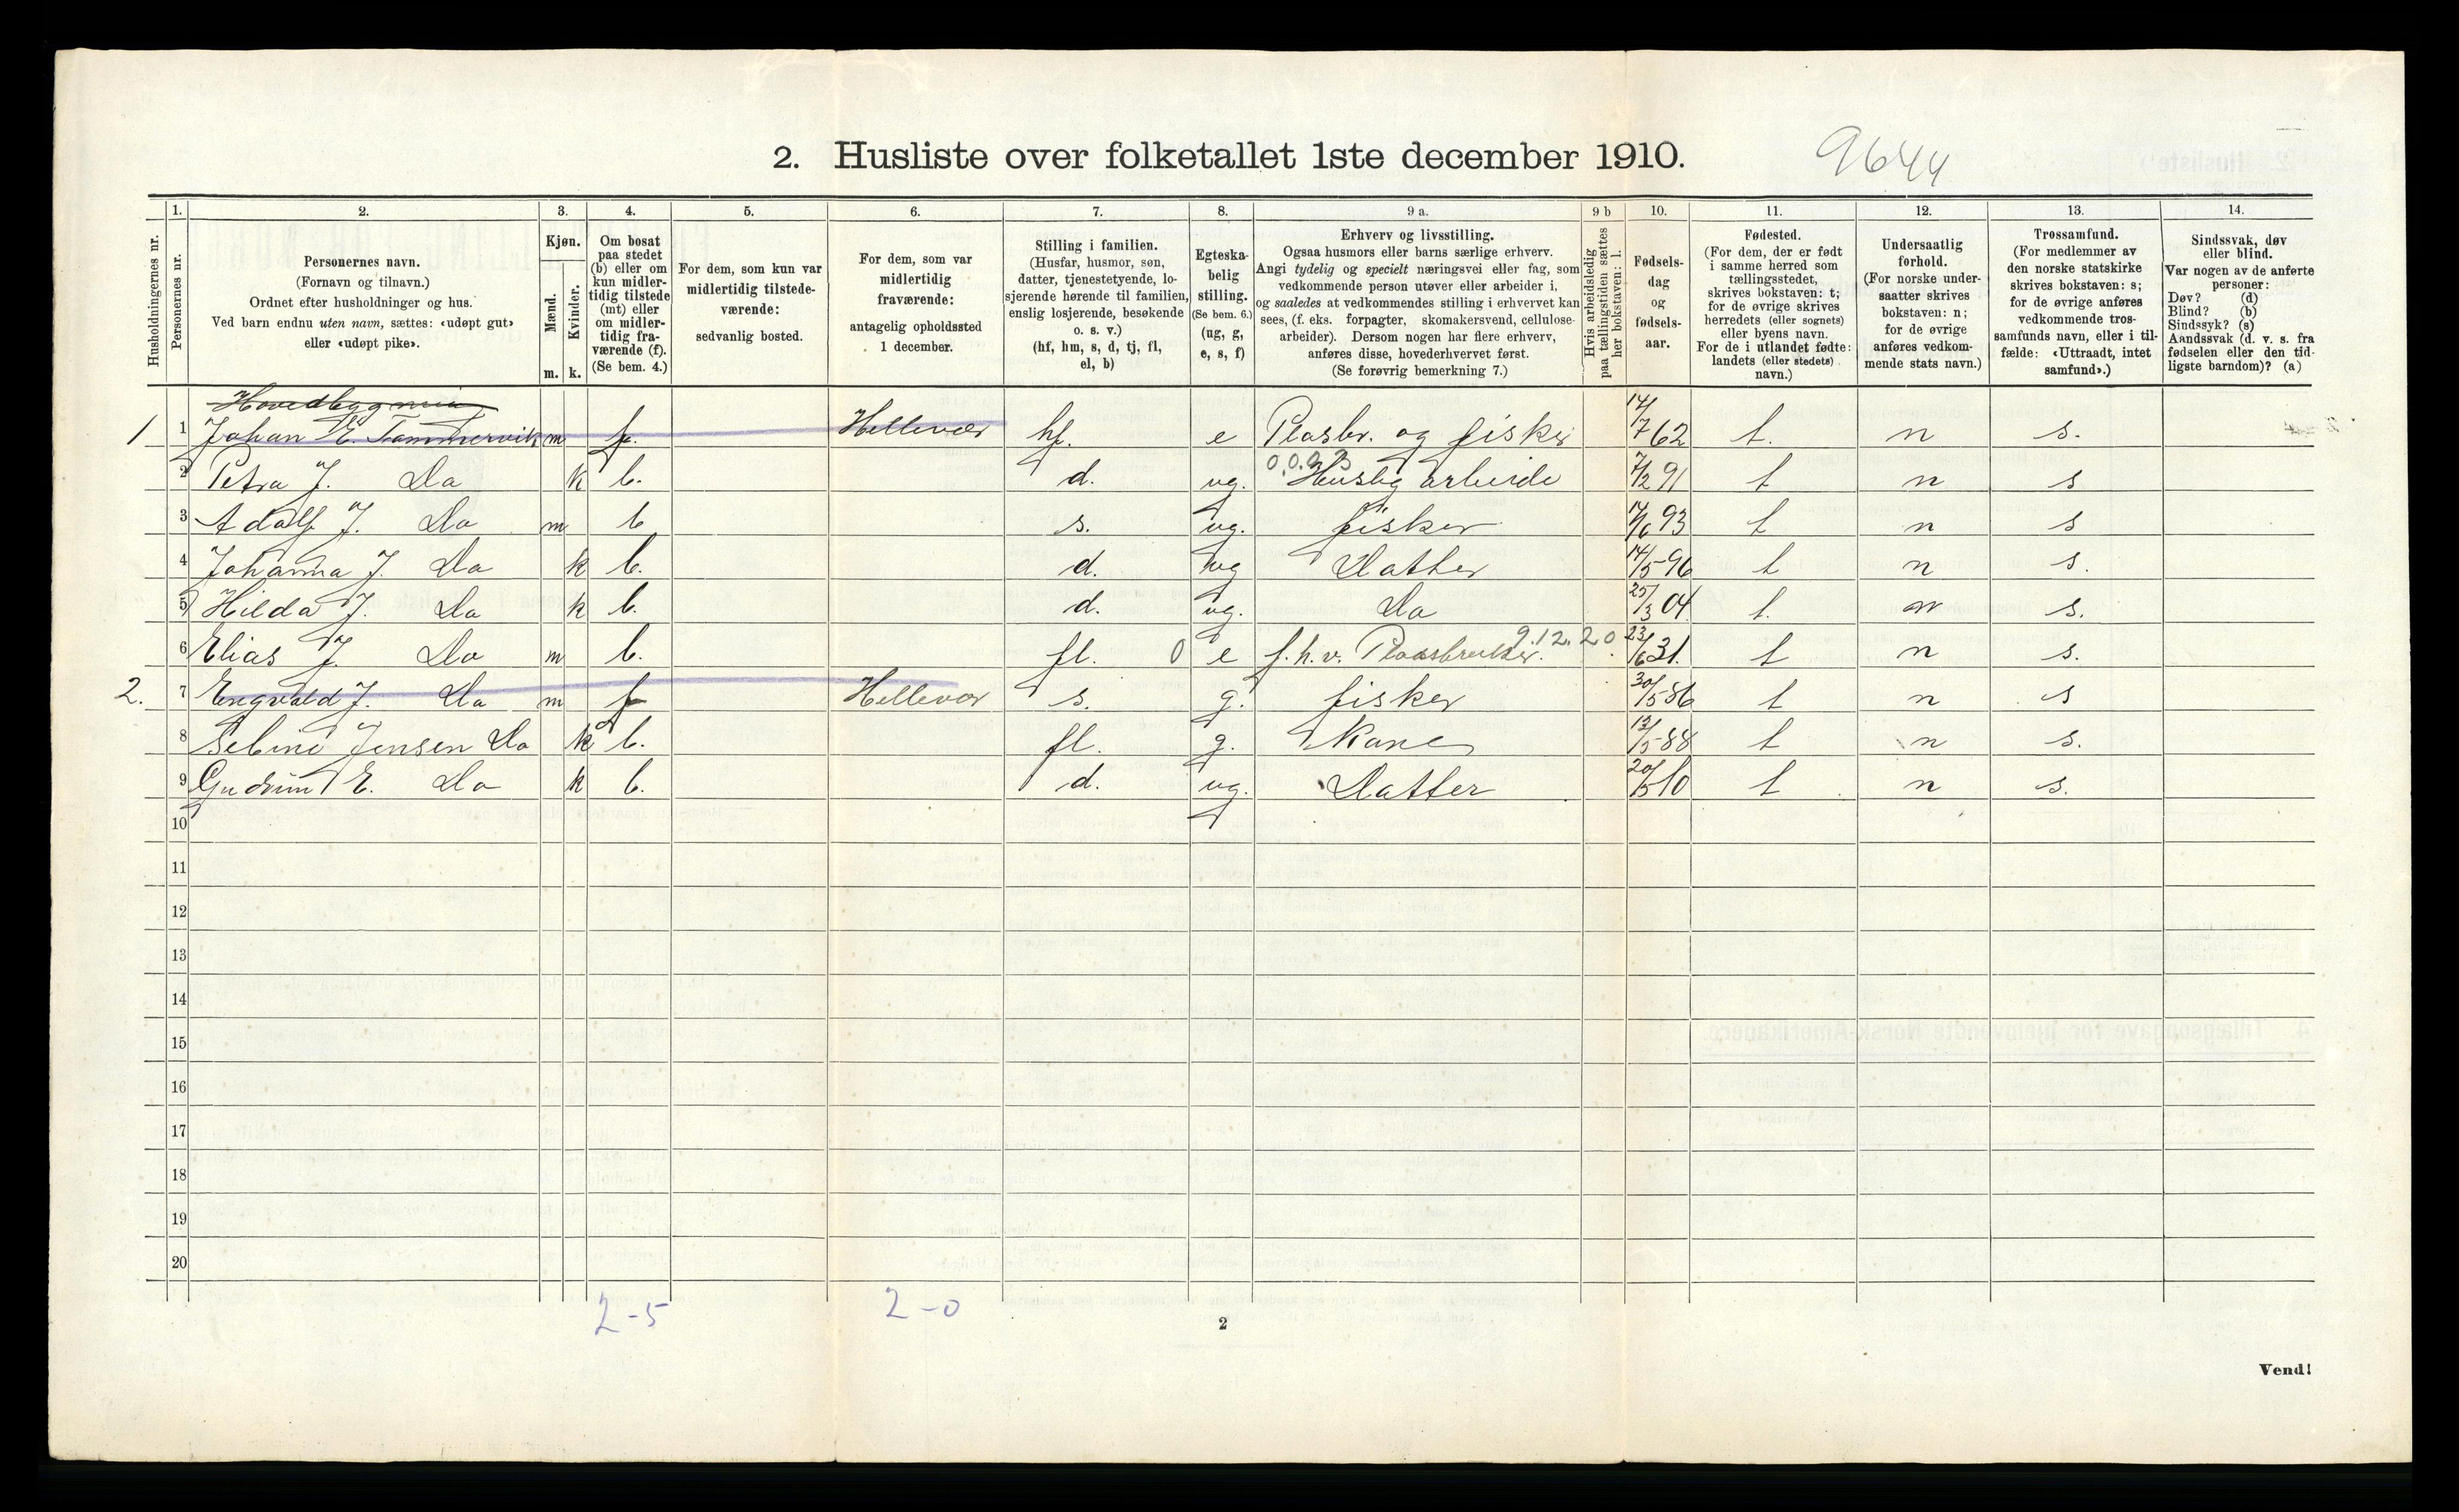 2. Husliste over folketallet 1ste december 1910.
9644
Husholdningernes nr.
1.
Personernes nr.
2.
Personernes navn.
(Fornavn og tilnavn.)
Ordnet efter husholdninger og hus.
Ved barn endnu uten navn, sættes: «udøpt gut»
eller «udøpt pike».
3.
Kjøn.
Mænd.
Kvinder.
m. k.
4.
Om bosat
paa stedet
(b) eller om
kun midler-
tidig tilstede
(mt) eller
om midler-
tidig fra-
værende (f).
(Se bem. 4.)
5.
For dem, som kun var
midlertidig tilstede-
værende:
sedvanlig bosted.
6.
For dem, som var
midlertidig
fraværende:
antagelig opholdssted
1 december.
7.
Stilling i familien.
(Husfar, husmor, søn,
datter, tjenestetyende, lo-
sjerende hørende til familien,
enslig losjerende, besøkende
o. s. v.)
(hf, hm, s, d, tj, fl,
el, b)
8.
Egteska-
belig
stilling.
(Se bem. 6.)
(ug, g,
e, s, f)
9 a.
Erhverv og livsstilling.
Ogsaa husmors eller barns særlige erhverv.
Angi tydelig og specielt næringsvei eller fag, som
vedkommende person utøver eller arbeider i,
og saaledes at vedkommendes stilling i erhvervet kan
sees, (f. eks. forpagter, skomakersvend, cellulose-
arbeider). Dersom nogen har flere erhverv,
anføres disse, hovederhvervet først.
(Se forøvrig bemerkning 7.)
9 b
Hvis arbeidsledig
paa tællingstiden sættes
her bokstaven: l.
10.
Fødsels-
dag
og
fødsels-
aar.
11.
Fødested.
(For dem, der er født
i samme herred som
tællingsstedet,
skrives bokstaven: t;
for de øvrige skrives
herredets (eller sognets)
eller byens navn.
For de i utlandet fødte:
landets (eller stedets)
navn.)
12.
Undersaatlig
forhold.
(For norske under-
saatter skrives
bokstaven: n;
for de øvrige
anføres vedkom-
mende stats navn.)
13.
Trossamfund.
(For medlemmer av
den norske statskirke
skrives bokstaven: s;
for de øvrige anføres
vedkommende tros-
samfunds navn, eller i til-
fælde: «Uttraadt, intet
samfund».)
14.
Sindssvak, døv
eller blind.
Var nogen av de anførte
personer:
Døv? (d)
Blind? (b)
Sindssyk? (s)
Aandssvak (d. v. s. fra
fødselen eller den tid-
ligste barndom)? (a)
Hovedbygning
1 1 Johan E. Tommervik m f. Hellevær hf. e Plasbr. og fisker 14/7 62 t. n s.
2 Petra J. Do k b. d. ug. 0.0.93 Huslig arbeide 7/2 91 t n s
3 Adolf J. Do m b s. ug. fisker 14/6 93 t n s
4 Johanna J. Do k b. d. ug Datter 14/5 96 t n s.
5 Hilda J. Do k b. d. ug. Do 25/3 04 t. n s.
6 Elias J. Do m b. fl. 0 e f.h.v. Plassbruker. 9.12.20 23/6 31. t n s.
2. 7 Engvald J. Do m f Hellevær s. g. fisker 30/5 86 t n s
8 Sebine Jensen Do k b. fl. g. Kone 13/5 88 t n s.
9 Gudrun E. Do k b. d. ug. Datter 20/5 10 t n s.
10
11
12
13
14
15
16
17
18
19
20
2-5 2-0
2
Vend!